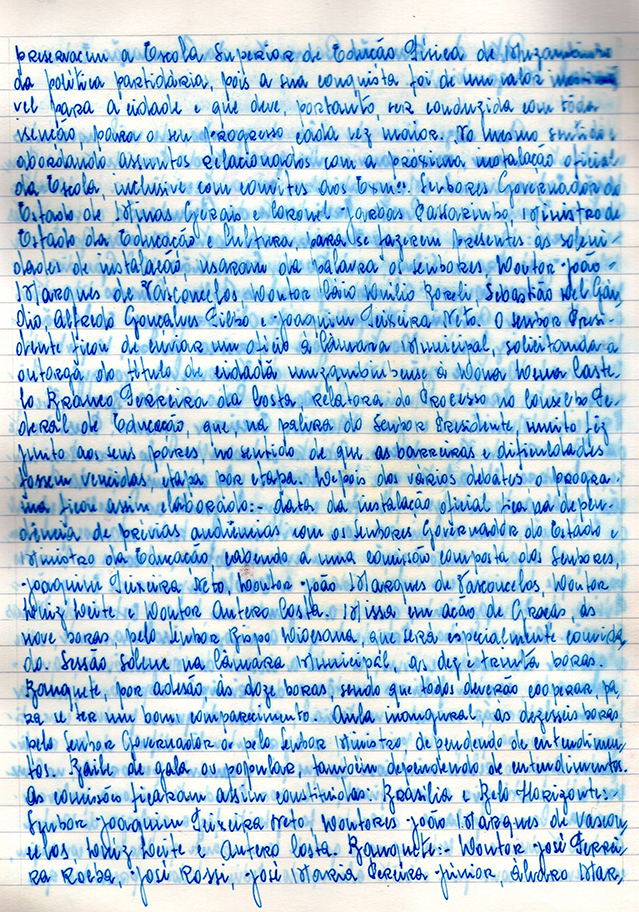 preservarem a Escola Superior de Educação Física de Muzambinho
da política partidária, pois a sua conquista foi de um valor
vel para a cidade e que deve, portanto, ser conduzida com tôda
isenção, para o seu progresso cada vez maior. No mesmo sentido e
abordando assuntos relacionados com a próxima instalação oficial
da Escola, inclusive com convites aos Exmos. Senhores Governador do
Estado de Minas Gerais e Coronel Jarbas Passarinho, Ministro de
Estado da Educação e Cultura, para se fazerem presentes às soleni-
dades de instalação, usaram da palavra os senhores, Doutor João
Marques de Vasconcelos, Doutor Lívio Emílio Boreli, Sebastião Del Gáu-
dio, Alfredo Gonçalves Filho e Joaquim Teixeira Neto. O senhor Presi-
dente ficou de enviar um ofício à Câmara Municipal, solicitando a
outorga do título de cidadã muzambinhense à Dona Nena Caste-
lo Branco Ferreira da Costa, relatora do Processo no Conselho Fe-
deral de Educação, que, na palavra do Senhor Presidente, muito fêz
junto aos seus pares, no sentido de que as barreiras e dificuldades
fossem vencidas, etapa por etapa. Depois dos vários debates o progra-
ma ficou assim elaborado:- data da instalação oficial ficará depen-
dência de prévias audiências com os Senhores Governador do Estado e
Ministro da Educação, cabendo a uma comissão composta dos Senhores,
Joaquim Teixeira Neto, Doutor João Marques de Vasconcelos, Doutor
Luiz Leite e Doutor Antero Costa. Missa em ação de Graças, às
nove horas pelo Senhor Bispo Diocesano, que será especialmente convida-
do. Sessão Solene na Câmara Municipal, às dez e trinta horas.
Banquete, por adesão às doze horas, sendo que todos deverão cooperar, pa-
ra se ter um bom comparecimento. Aula inaugural, às dezesseis horas
pelo Senhor Governador ou pelo Senhor Ministro, dependendo de entendimen-
tos. Baile de gala ou popular, também dependendo de entendimentos.
As comissões ficaram assim constituídas: Brasília e Belo Horizonte:-
Senhor Joaquim Teixeira Neto, Doutores João Marques de Vascon-
celos, Luiz Leite e Antero Costa. Banquete:- Doutor José Ferrei-
ra Rocha, José Rossi, José Maria Pereira Júnior, Álvaro Mar,